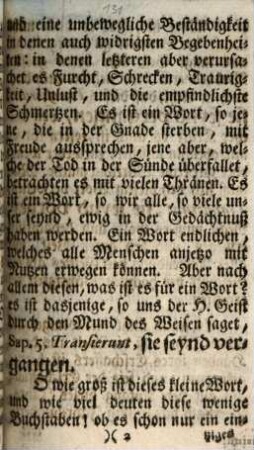 131
und eine unbewegliche Beständigkeit
in denen auch widrigsten Begebenhei-
ten: in denen letzteren aber verursa-
chet es Furcht, Schrecken, Traurig-
keit, Unlust, und die empfindlichste
Schmertzen. Es ist ein Wort, so je-
ne, die in der Gnade sterben, mit
Freude aussprechen, jene aber, wel-
che der Tod in der Sünde überfallet,
betrachten es mit vielen Thränen. Es
ist ein Wort, so wir alle, so viele un-
ser seynd, ewig in der Gedächtnuß
haben werden. Ein Wort endlichen,
welches alle Menschen anjetzo mit
Nutzen erwegen können. Aber nach
allem diesen, was ist es für ein Wort?
es ist dasjenige, so uns der H. Geist
durch den Mund des Weisen saget,
Sap. 5. Transierunt, sie seynd ver-
gangen.
O wie groß ist dieses kleine Wort,
und wie viel deuten diese wenige
Buchstaben! ob es schon nur ein ein-
)( 2 tziges